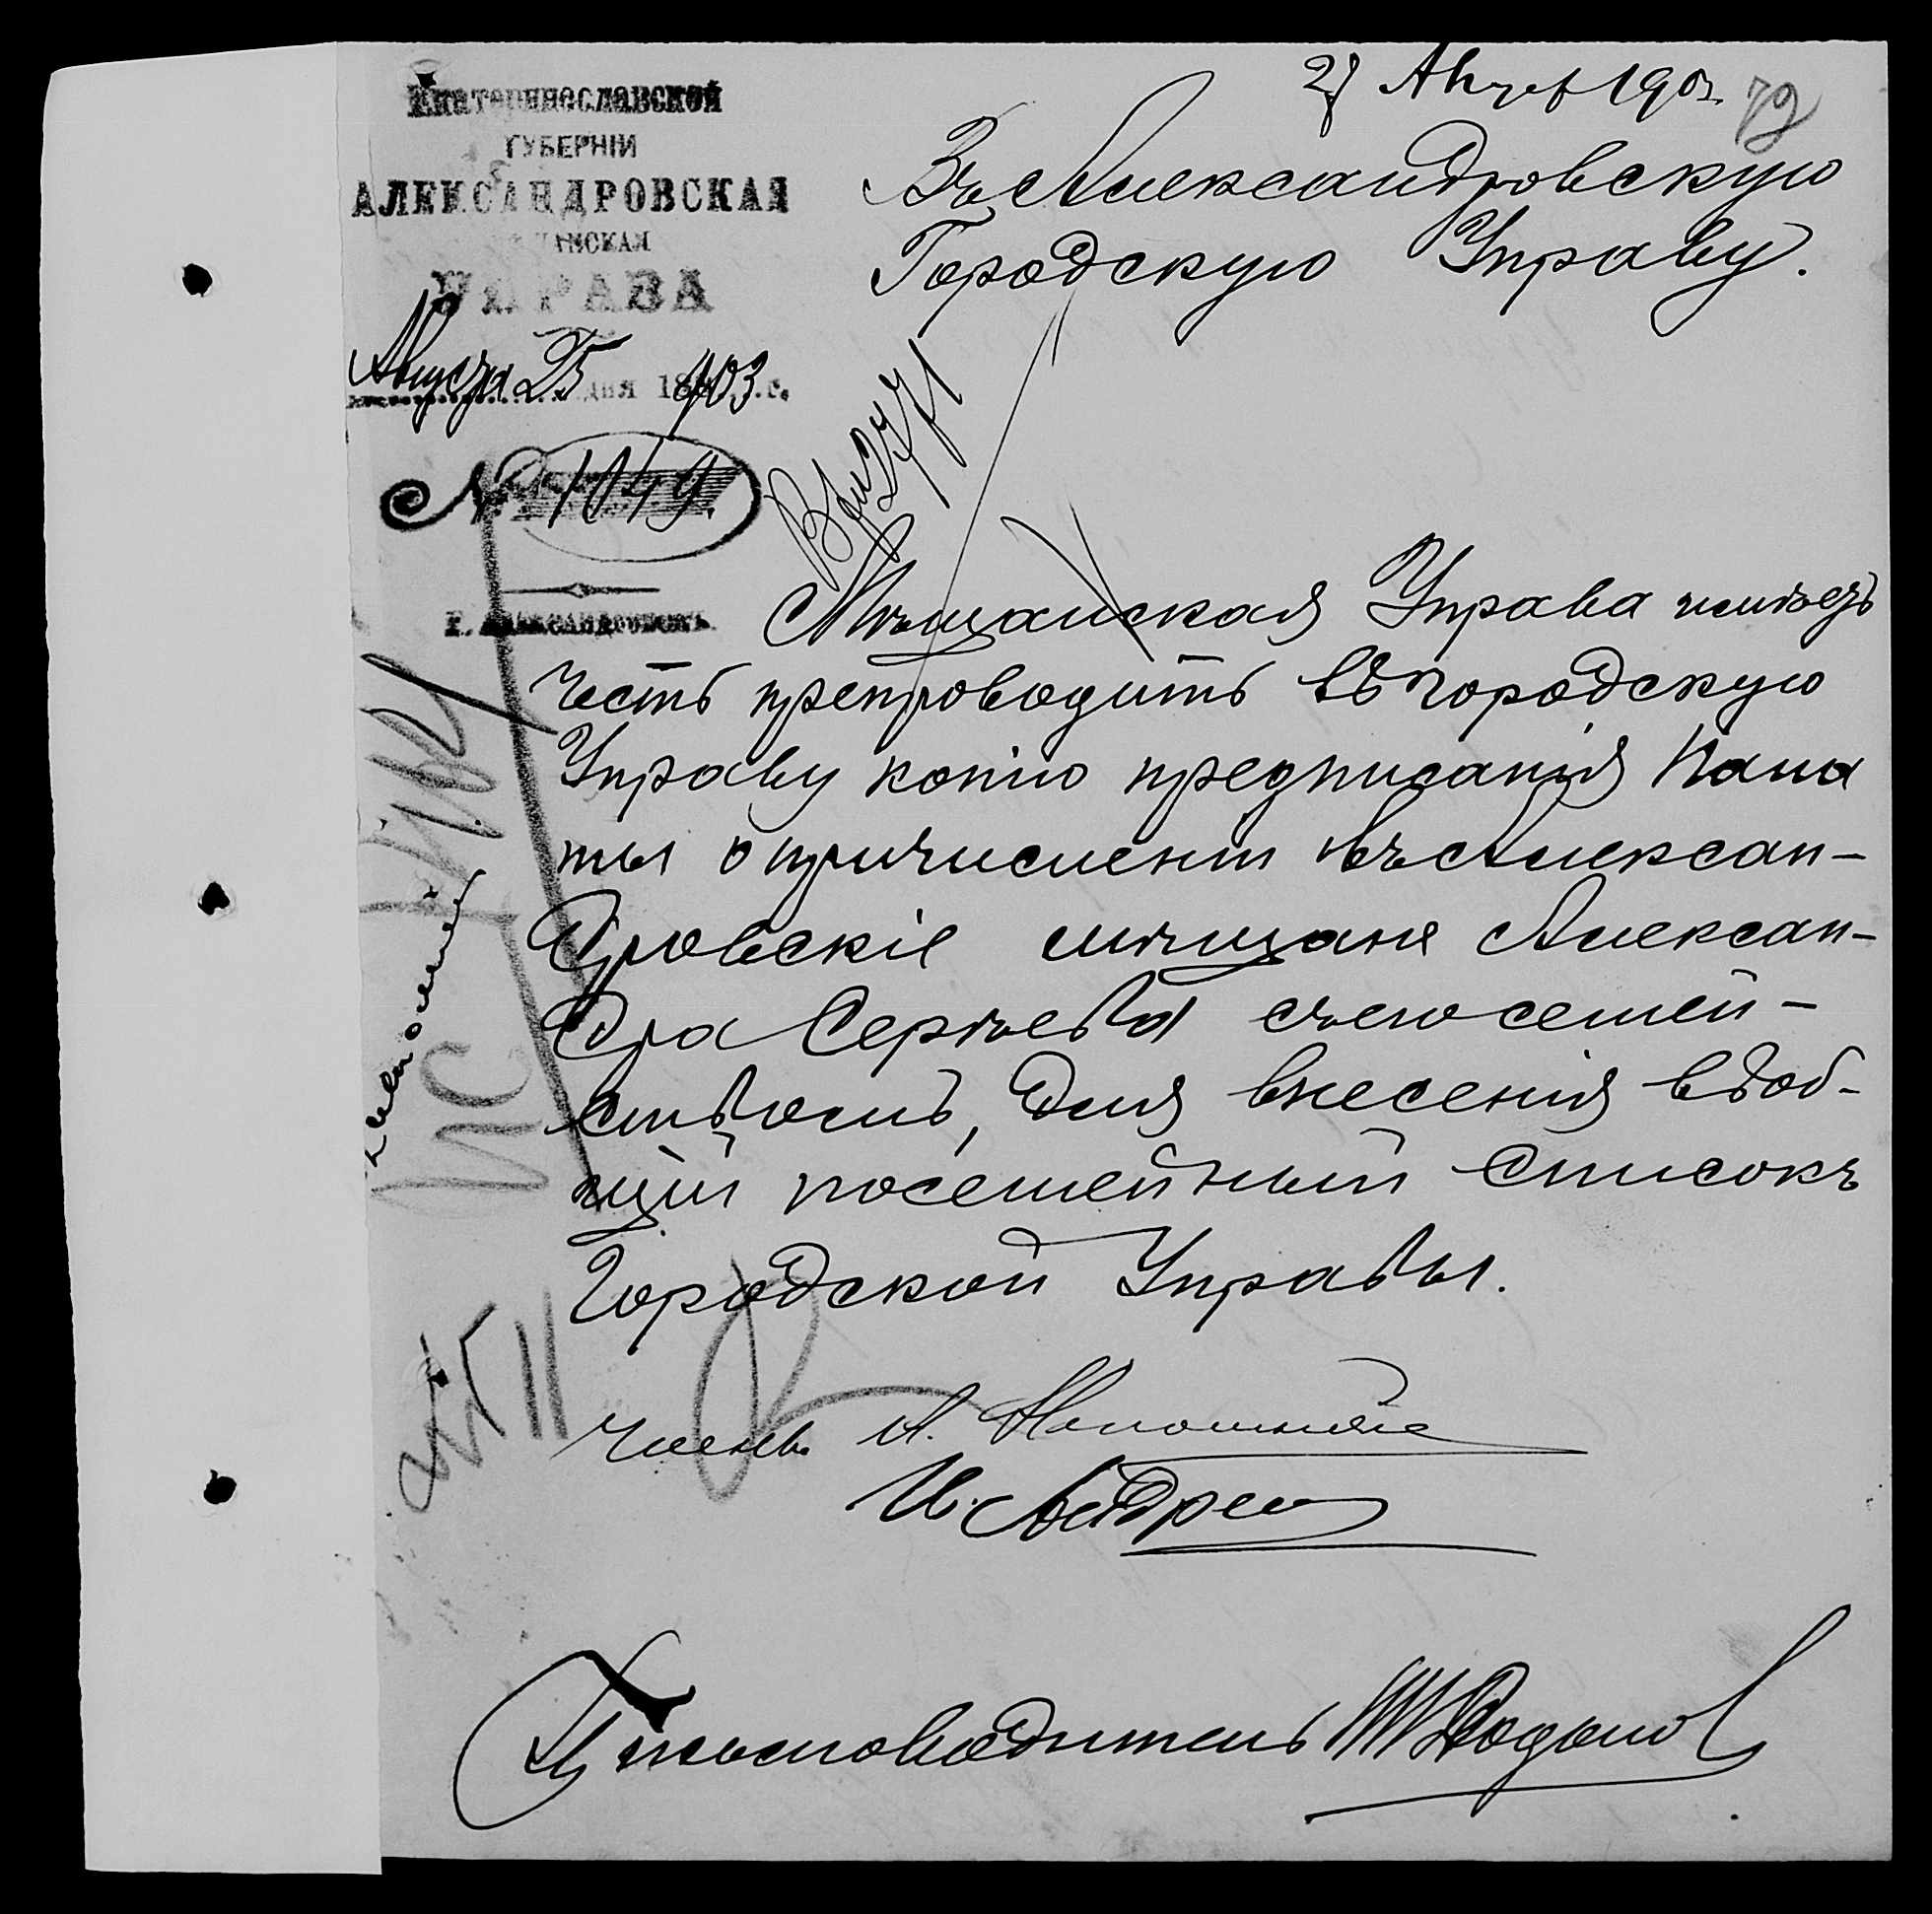 27 Авг 1903
79
Екатеринославской
ГУБЕРНІИ
АЛЕКСАНДРОВСКАЯ
УПРАВА
Августа 25 дня 1903 г.
№ 1049.
Г. Александровскъ.
Въ Александровскую
Городскую Управу.
Вх 2771
Мѣщанская Управа имѣетъ
честь препроводить въ городскую
Управу копію предписанія Пала
ты о причисленіи въ Алексан-
дровскіе мѣщане Алексан-
дра Сергѣева съ его семей-
ствомъ, для внесенія въ об-
щій посемейный списокъ
Городской Управы.
Члены А.
И.
Письмоводитель